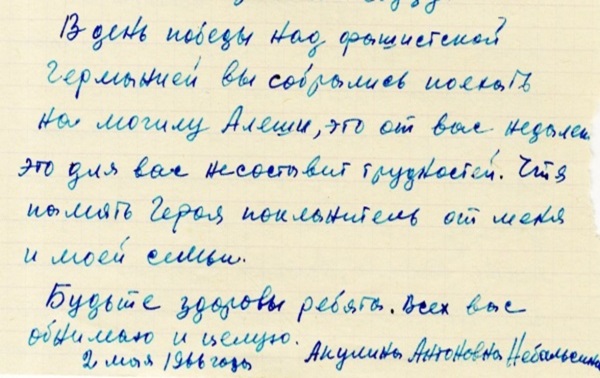 В день победы над фашистской
Германией вы собрались поехать
на могилу Алеши, это от вас недалек
это для вас несоставит трудностей. Чтя
память Героя поклонитесь от меня
и моей семьи.
Будьте здоровы ребята. Всех вас
обнимаю и целую.
2 мая 1966 года Акулина Антоновна